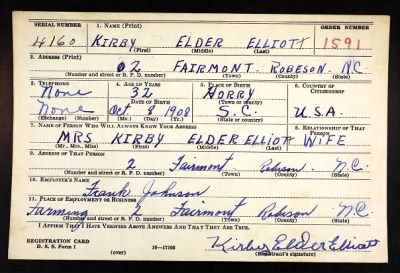 SERIAL NUMBER 1. NAME (Print) ORDER NUMBER
4160 KIRBY ELDER ELLIOTT 1591
(First) (Middle) (Last)
2. ADDRESS (Print)
02 FAIRMONT. ROBESON. N.C
(Number and street or R. F. D. number) (Town) (County) (State)
3. TELEPHONE 4. AGE IN YEARS 5. PLACE OF BIRTH 6. COUNTRY OF CITIZENSHIP
None 32 HORRY
DATE OF BIRTH (Town or county)
None Oct 9 1908 S.C. U.S.A.
(Exchange) (Number) (Mo.) (Day) (Yr.) (State or country)
7. NAME OF PERSON WHO WILL ALWAYS KNOW YOUR ADDRESS 8. RELATIONSHIP OF THAT PERSON
MRS KIRBY ELDER ELLIOTT WIFE
(Mr., Mrs., Miss) (First) (Middle) (Last)
9. ADDRESS OF THAT PERSON
2 Fairmont Robeson N.C.
(Number and street or R. F. D. number) (Town) (County) (State)
10. EMPLOYER'S NAME
Frank Johnson
11. PLACE OF EMPLOYMENT OR BUSINESS
Farming 2 Fairmont Robeson N.C.
(Number and street or R. F. D. number) (Town) (County) (State)
I AFFIRM THAT I HAVE VERIFIED ABOVE ANSWERS AND THAT THEY ARE TRUE.
REGISTRATION CARD
D. S. S. Form 1 (over) 16—17105 Kirby Elder Elliott
(Registrant's signature)